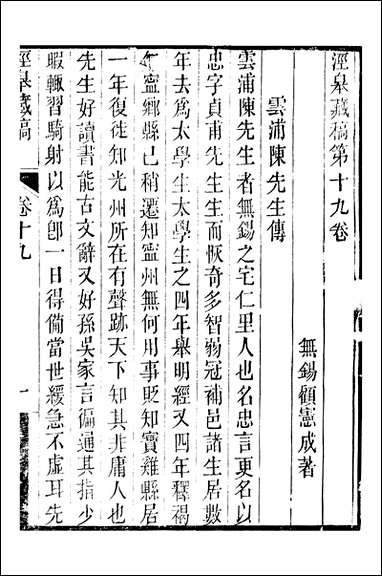 涇臯藏稿第十九卷
無錫顧憲成著
雲浦陳先生傳
雲浦陳先生者無錫之宅仁里人也名忠言更名以
忠字貞甫先生生而恢奇多智弱冠補邑諸生居數
年去爲太學生太學生之四年舉明經又四年釋褐
知寧鄉縣已稍遷知寧州無何用事貶知寶雞縣居
一年復徙知光州所在有聲跡天下知其非庸人也
先生好讀書能古文辭又好孫吳家言徧通其指少
暇輒習騎射以爲卽一日得備當世緩急不虛耳先
涇臯藏稿
卷十九
一